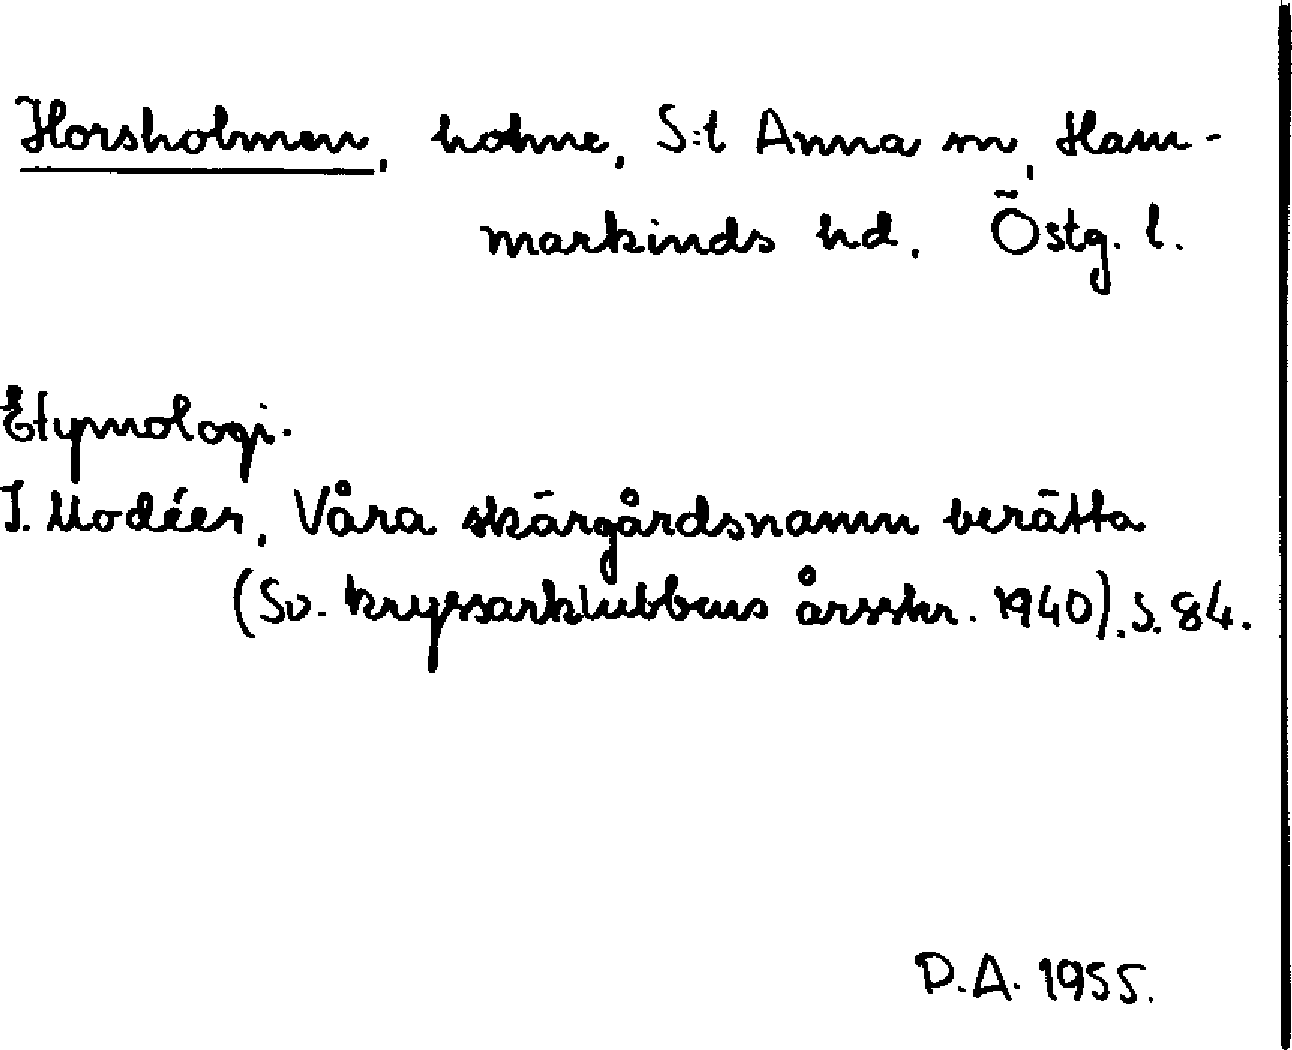 Horsholmen, holme, S:t Anna sn, Ham-
markinds hd, Östg. l.
Etymologi.
I. Modéer, Våra skärgårdsnamn berätta
(Sv. kryssarklubbens årsskr. 1940). S. 84.
D.A. 1955.